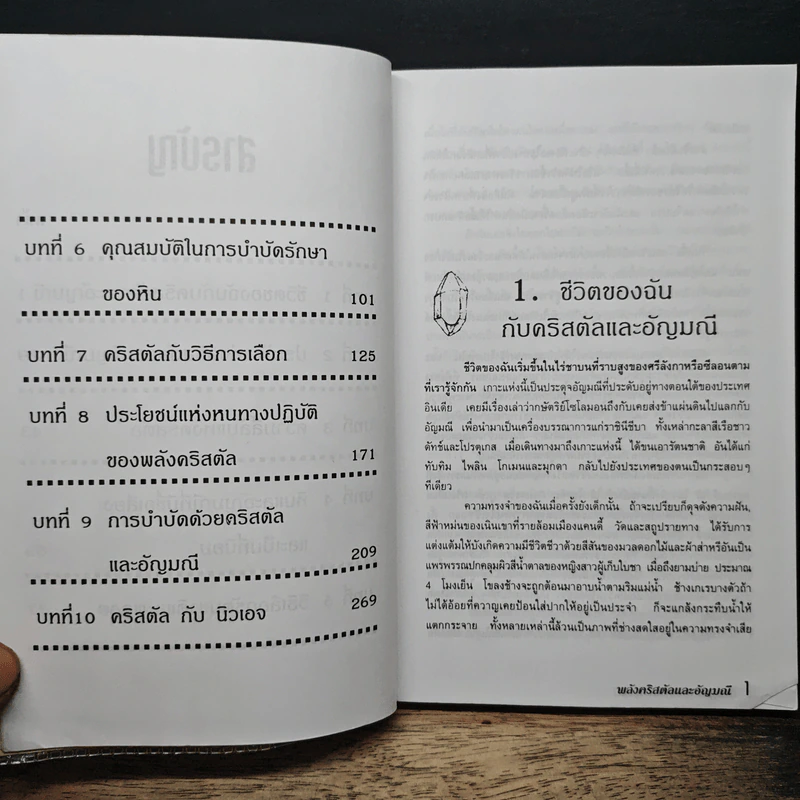 บทที่ 6 คุณสมบัติในการบำบัดรักษา
ของหิน 101
บทที่ 7 คริสตัลกับวิธีการเลือก 125
บทที่ 8 ประโยชน์แห่งหนทางปฏิบัติ
ของพลังคริสตัล 171
บทที่ 9 การบำบัดด้วยคริสตัล
และอัญมณี 209
บทที่10 คริสตัล กับ นิวเอจ 269
1. ชีวิตของฉัน
กับคริสตัลและอัญมณี
ชีวิตของฉันเริ่มขึ้นในไร่ชาบนที่ราบสูงของศรีลังกาหรือซีลอนตาม
ที่เรารู้จักกัน เกาะแห่งนี้เป็นประตุจอัญมณีที่ประดับอยู่ทางตอนใต้ของประเทศ
อินเดีย เคยมีเรื่องเล่าว่ากษัตริย์โซโลมอนถึงกับเคยส่งข้าแผ่นดินไปแลกกับ
อัญมณี เพื่อนำมาเป็นเครื่องบรรณาการแก่ราชินีชีบา ทั้งเหล่ากะลาสีเรือชาว
ดัทช์และโปรตุเกส เมื่อเดินทางมาถึงเกาะแห่งนี้ ได้ขนเอารัตนชาติ อันได้แก่
ทับทิม ไพลิน โกเมนและมุกดา กลับไปยังประเทศของตนเป็นกระสอบๆ
ทีเดียว
ความทรงจำของฉันเมื่อครั้งยังเด็กนั้น ถ้าจะเปรียบก็ดุจดังความฝัน,
สีฟ้าหม่นของเนินเขาที่รายล้อมเมืองแคนดี้ วัดและสถูปรายทาง ได้รับการ
แต่งแต้มให้บังเกิดความมีชีวิตชีวาด้วยสีสันของมวลดอกไม้และผ้าส่าหรีอันเป็น
แพรพรรณปกคลุมผิวสีน้ำตาลของหญิงสาวผู้เก็บใบชา เมื่อถึงยามบ่าย ประมาณ
4 โมงเย็น โขลงช้างจะถูกต้อนมาอาบน้ำตามริมแม่น้ำ ช้างเกเรบางตัวถ้า
ไม่ได้อ้อยที่ควาญเคยป้อนใส่ปากให้อยู่เป็นประจำ ก็จะแกล้งกระทืบน้ำให้
แตกกระจาย ทั้งหลายเหล่านี้ล้วนเป็นภาพที่ช่างสดใสอยู่ในความทรงจำเสีย
พลังคริสตัลและอัญมณี 1